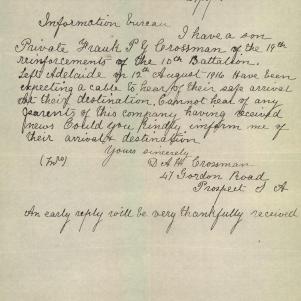 Information Bureau
I have a son
Private Frank P G Crossman of the 19th
reinforcements of the 10th Battalion.
Left Adelaide on 12th August 1916 Have been
expecting a cable to hear of their safe arrival
at their destination, Cannot hear of any
parents of this company having received
news Could you kindly inform me of
their arrival & destination
Yours sincerely
(Mrs) D A H Crossman
47 Gordon Road
Prospect S A
An early reply will be very thankfully received